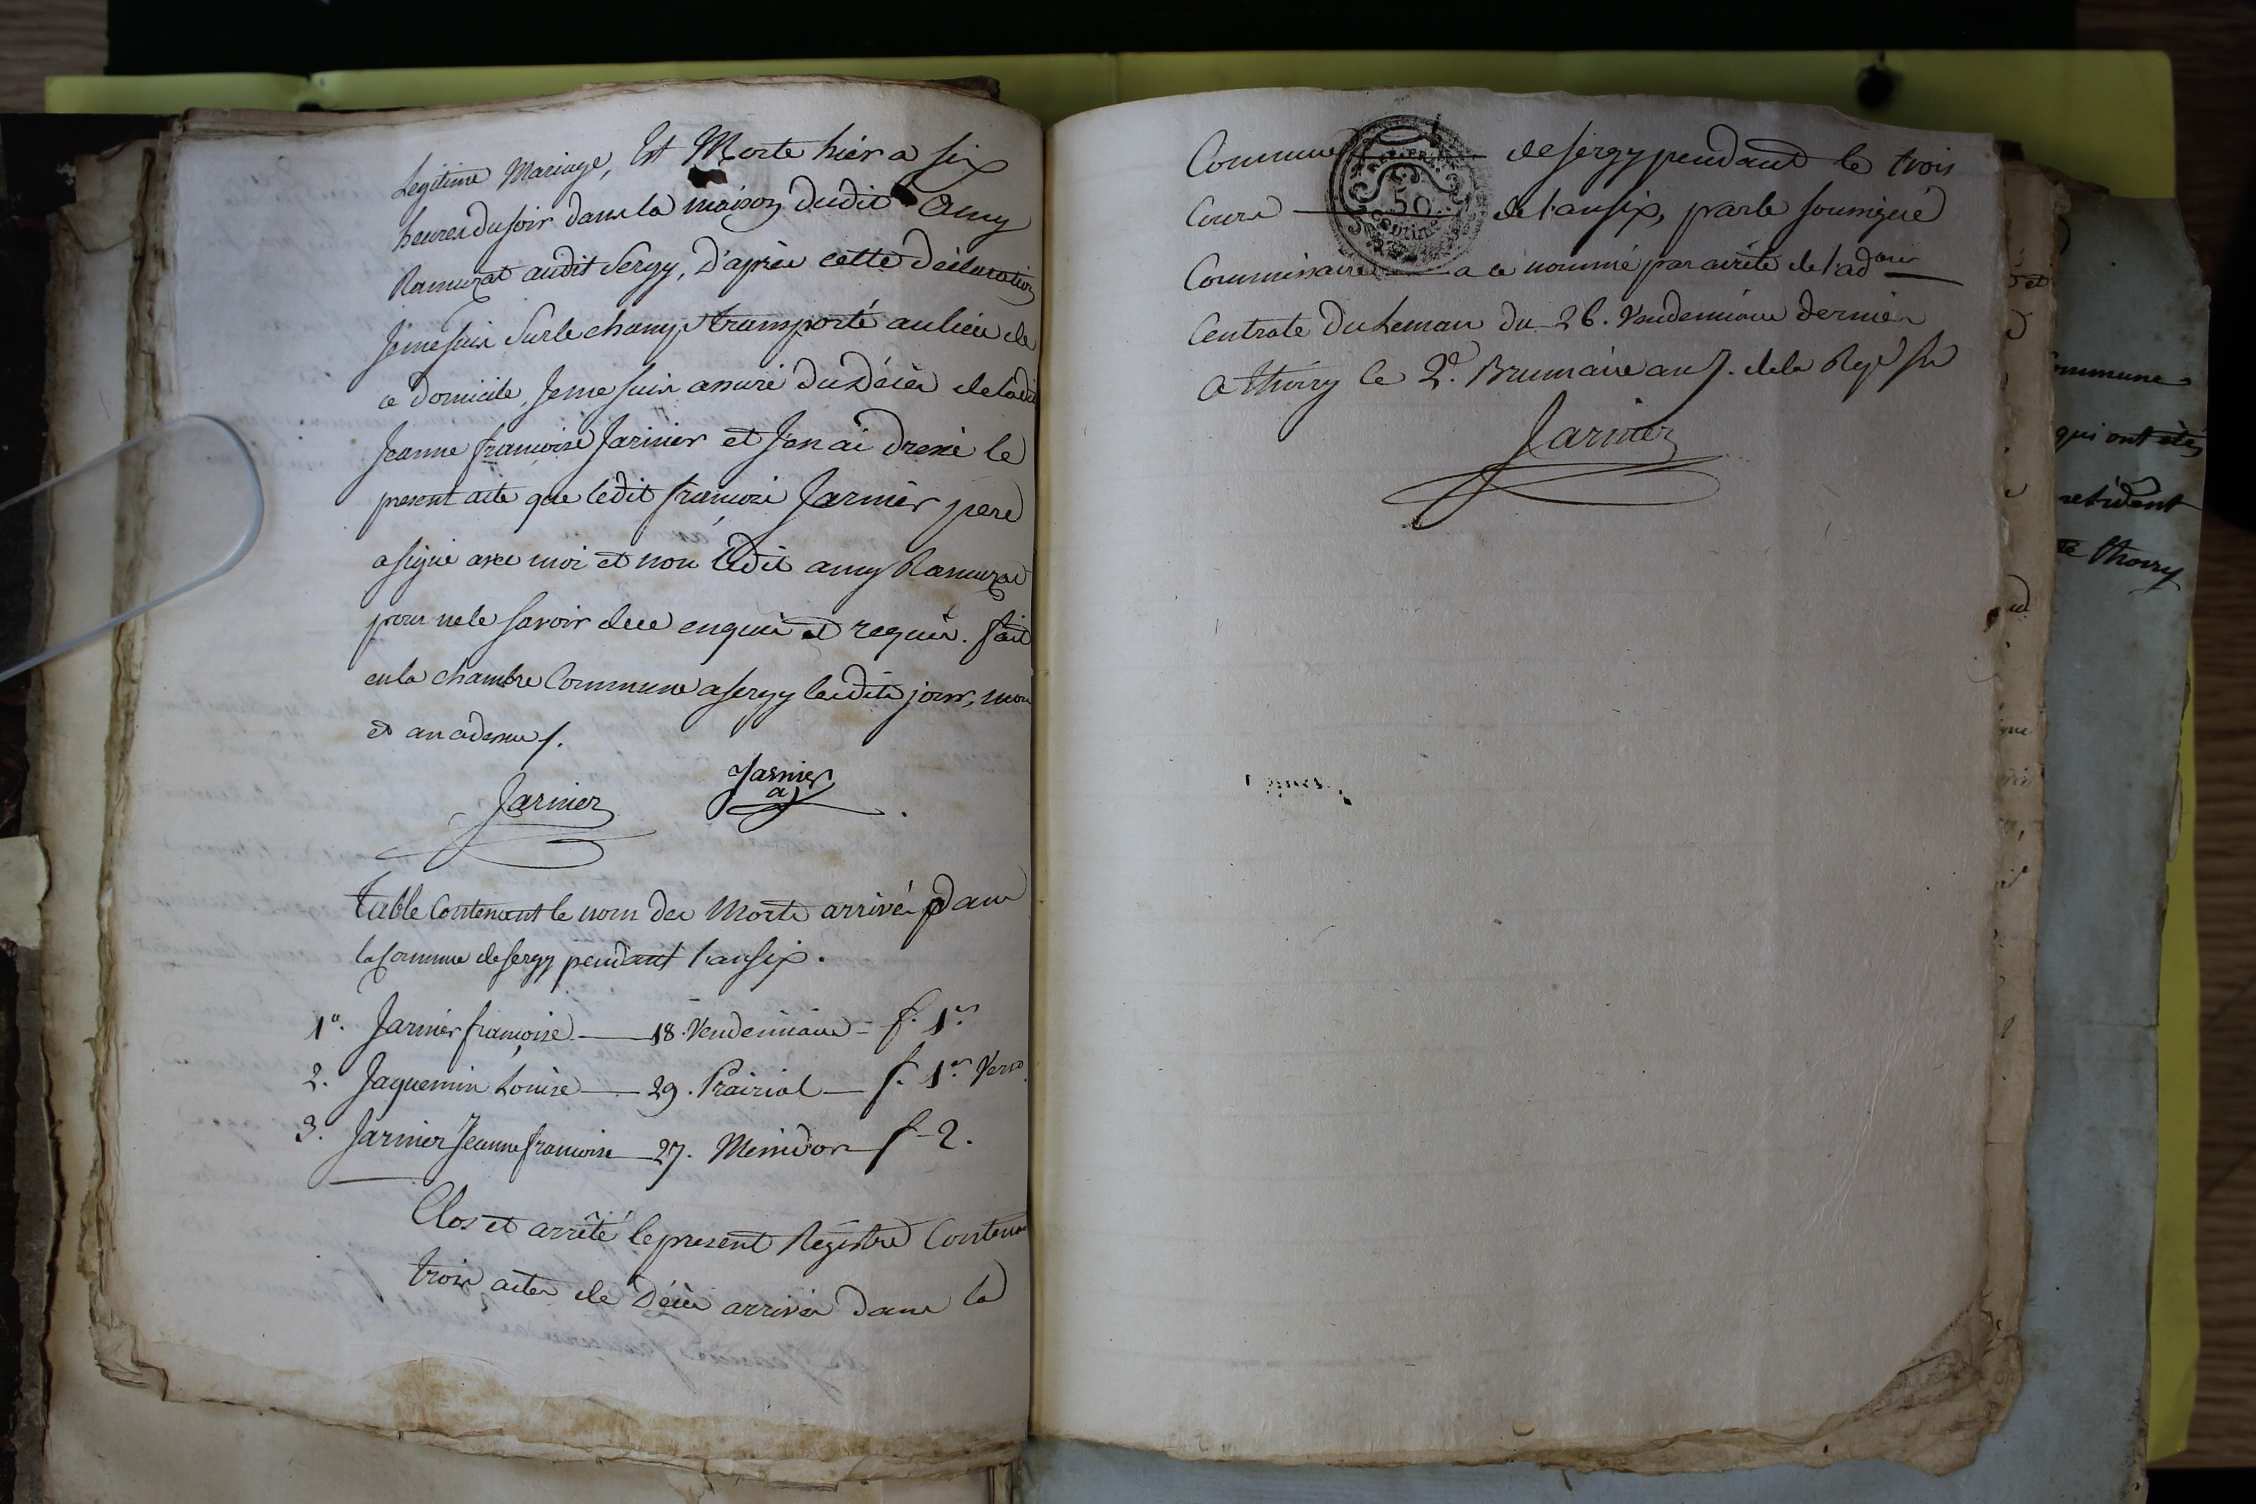 Legitime Mariage, Est Morte hier a six
heures du soir dans la maison dudit Amy
Ramuzat audit Sergy, D'après cette Déclaration
Je me suis Sur le champ transporté au lieu de
ce domicile, Je me suis assuré du Décès de ladit
Jeanne françoise Jarnier et J'en ai dressé le
present acte que ledit françois Jarnier pere
a signé avec moi et non ledit amy Ramuzat
pour ne le savoir de ce enquis et requis. fait
en la chambre Commune a Sergy lesdits jour, mois
et an adessus.
Jarnier Jasnier
a
Table Contenant le nom des Morts arrivés dans
la Commune de Sergy pendant l'an six.
1º. Jarnier françoise — 18. Vendemiaire — f. 1er
2. Jaquemin Louise — 29. Prairial — f. 1er Verso.
3. Jarnier Jeanne françoise — 27. Messidor — f-2.
Clos et arrêté le present Régistre Contenant
trois actes de Décès arrivés dans la
Commune — de Sergy pendant le trois
Cours — de l'an six, par le soussigné
Commissaire — a ce nommé par arrêté de l'adon
Centrale du Leman du 26. Vendemiaire dernier
a Thoiry le 2e. Brumaire an 7. de la Rep. fr
Jarnier
50
Centime
ommune
qui ont été
résident
Thoiry